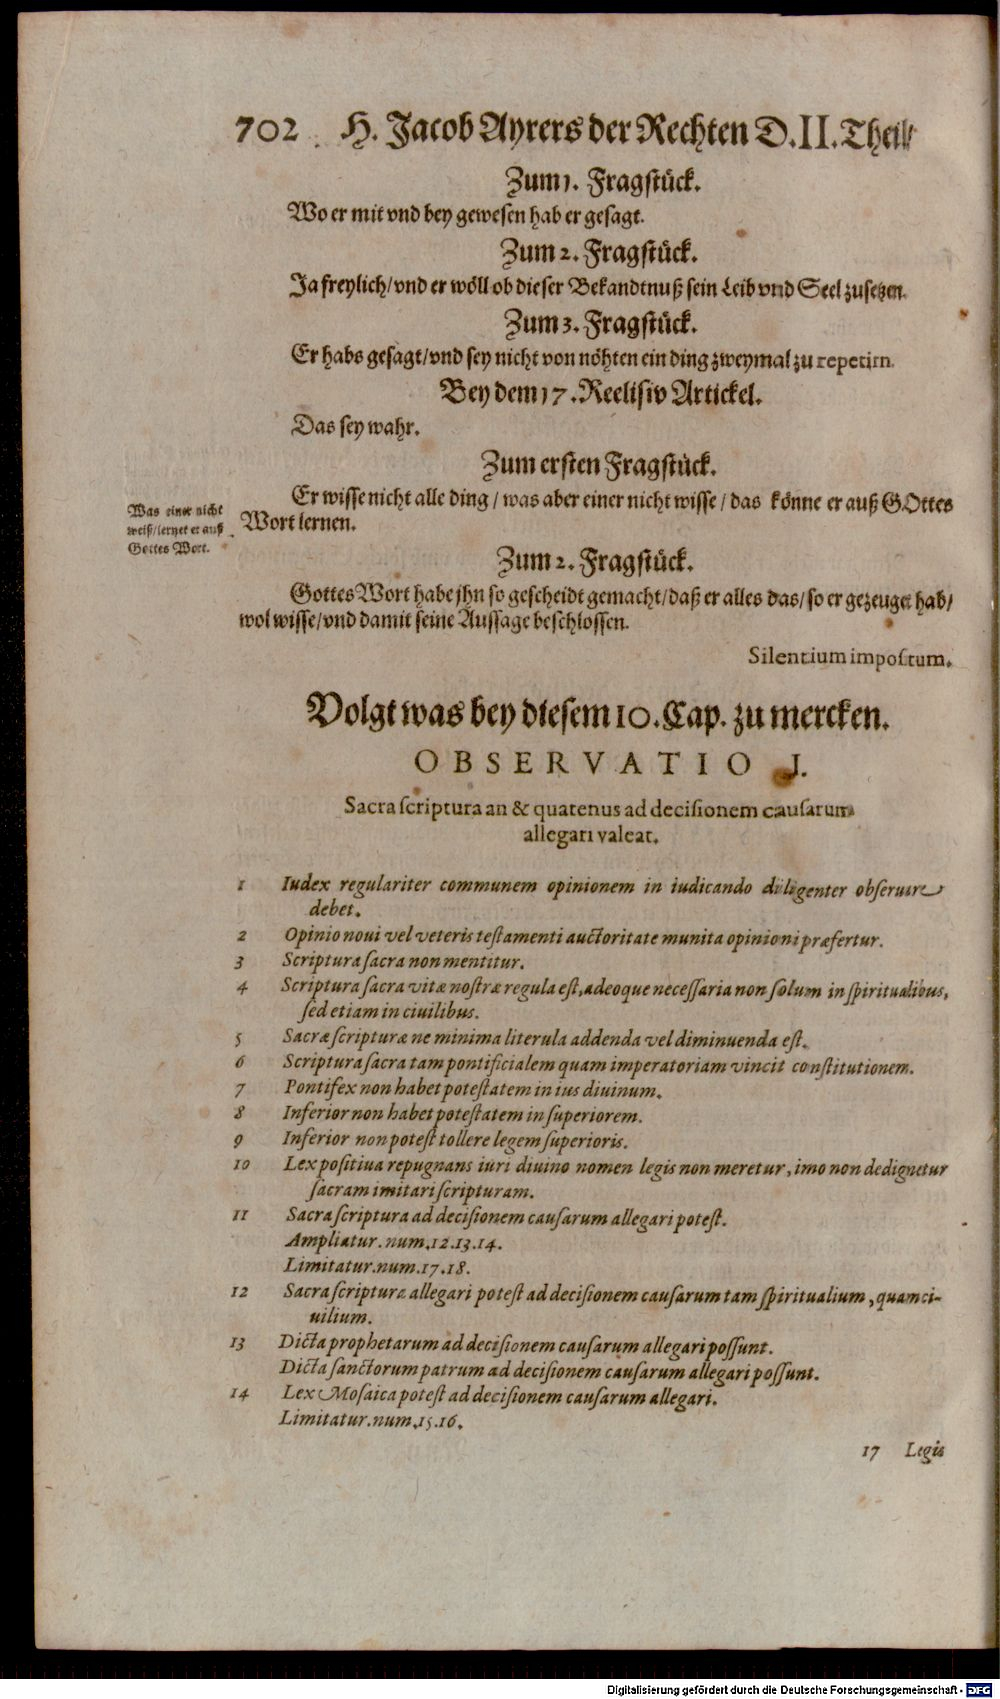 702 H. Jacob Ayrers der Rechten D. II. Theil/
Zum 1. Fragstück.
Wo er mit vnd bey gewesen hab er gesagt.
Zum 2. Fragstück.
Ja freylich/ vnd er wöll ob dieser Bekandtnuß sein Leib vnd Seel zusetzen.
Zum 3. Fragstück.
Er habs gesagt/ vnd sey nicht von nöhten ein ding zweymal zu repetirn.
Bey dem 17. Reelisiv Artickel.
Das sey wahr.
Zum ersten Fragstück.
Er wisse nicht alle ding / was aber einer nicht wisse / das könne er auß GOttes
Wort lernen.
Was einer nicht
weiß/ lernet er auß
Gottes Wort.
Zum 2. Fragstück.
Gottes Wort habe jhn so gescheidt gemacht/ daß er alles das/ so er gezeuget hab/
wol wisse/ vnd damit seine Aussage beschlossen.
Silentium impositum.
Volgt was bey diesem 10. Cap. zu mercken.
OBSERVATIO I.
Sacra scriptura an & quatenus ad decisionem causarum
allegari valeat.
1 Iudex regulariter communem opinionem in iudicando diligenter obseruare
debet.
2 Opinio noui vel veteris testamenti auctoritate munita opinioni præfertur.
3 Scriptura sacra non mentitur.
4 Scriptura sacra vitæ nostræ regula est, adeoque necessaria non solum in spiritualibus,
sed etiam in ciuilibus.
5 Sacræ scripturæ ne minima literula addenda vel diminuenda est.
6 Scriptura sacra tam pontificialem quam imperatoriam vincit constitutionem.
7 Pontifex non habet potestatem in ius diuinum.
8 Inferior non habet potestatem in superiorem.
9 Inferior non potest tollere legem superioris.
10 Lex positiua repugnans iuri diuino nomen legis non meretur, imo non dedignetur
sacram imitari scripturam.
11 Sacra scriptura ad decisionem causarum allegari potest.
Ampliatur. num. 12. 13. 14.
Limitatur. num. 17. 18.
12 Sacra scriptura allegari potest ad decisionem causarum tam spiritualium, quam ci-
uilium.
13 Dicta prophetarum ad decisionem causarum allegari possunt.
Dicta sanctorum patrum ad decisionem causarum allegari possunt.
14 Lex Mosaica potest ad decisionem causarum allegari.
Limitatur. num. 15. 16.
17 Legis
Digitalisierung gefördert durch die Deutsche Forschungsgemeinschaft - DFG